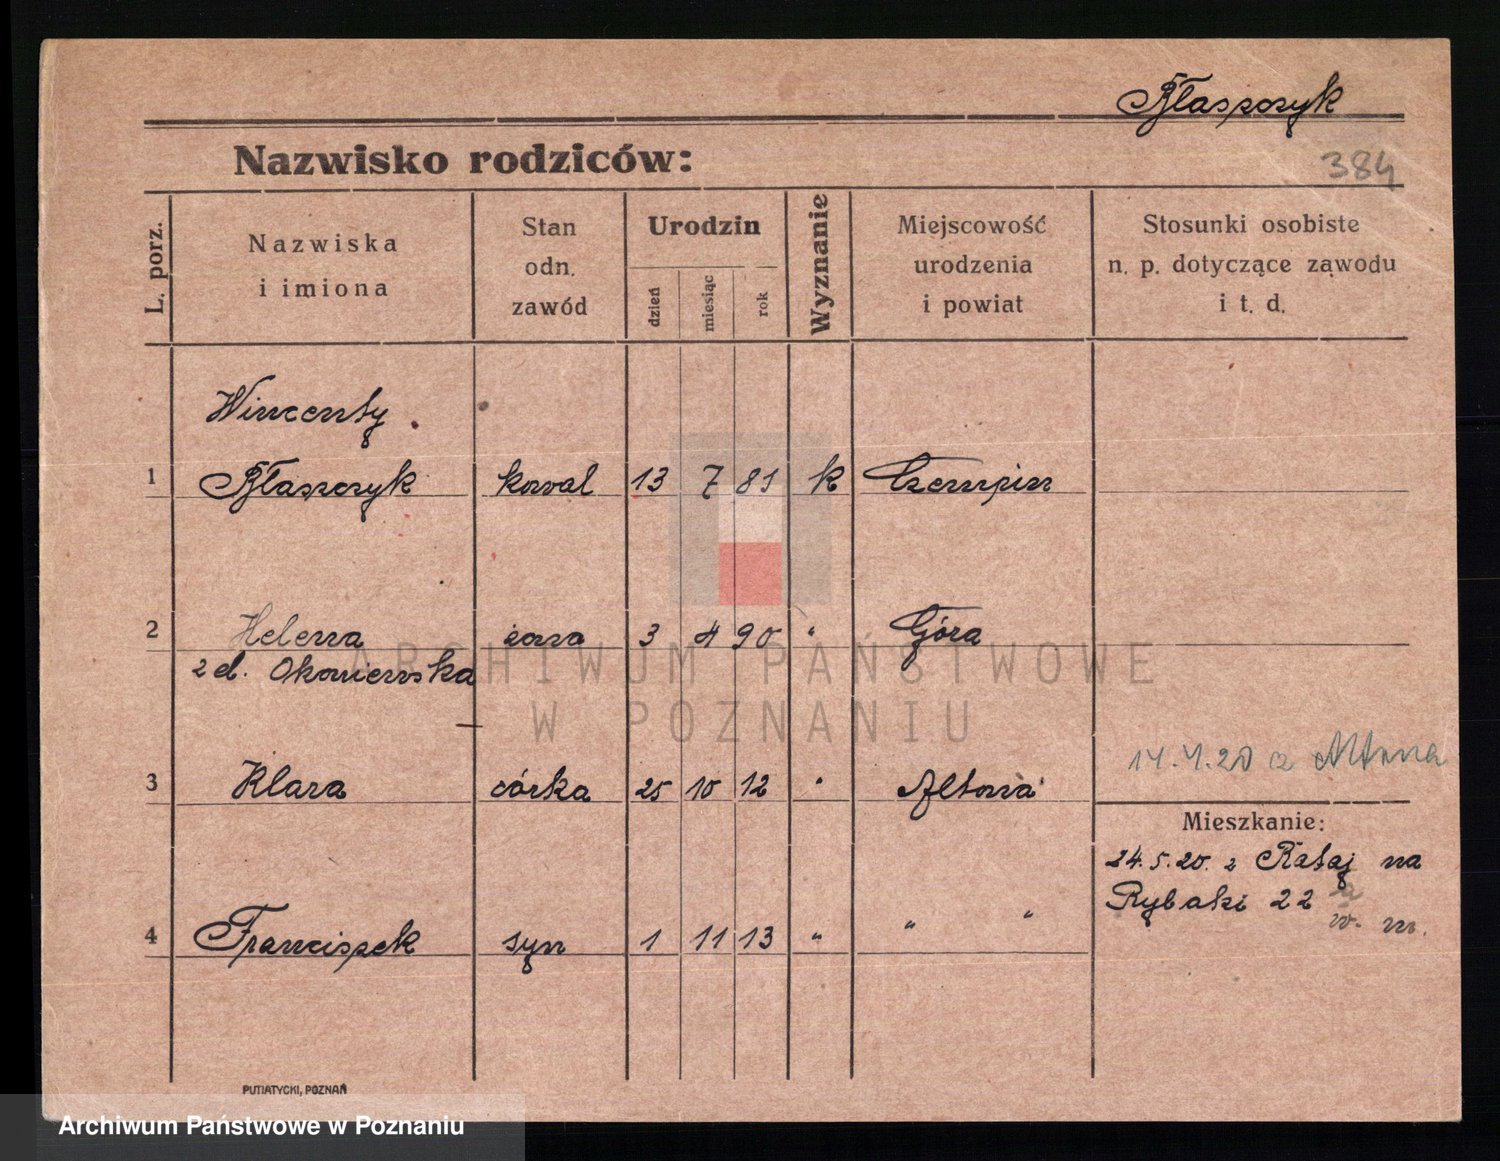 Błaszczyk
384
Nazwisko rodziców:
L. porz.
Nazwiska
i imiona
Stan
odn.
zawód
Urodzin
dzień
miesiąc
rok
Wyznanie
Miejscowość
urodzenia
i powiat
Stosunki osobiste
n. p. dotyczące zawodu
i t. d.
Wincenty
1 Błaszczyk kowal 13 7 81 k Czempin
2 Helena żona 3 4 90 " Góra
z d. Okoniewska
14.4.20 Altona
3 Klara córka 25 10 12 " Altona
Mieszkanie:
24.5.20. z Rataj na
Rybaki 22
w. m.
4 Franciszek syn 1 11 13 " " "
PUTIATYCKI, POZNAŃ
ARCHIWUM PAŃSTWOWE
W POZNANIU
Archiwum Państwowe w Poznaniu